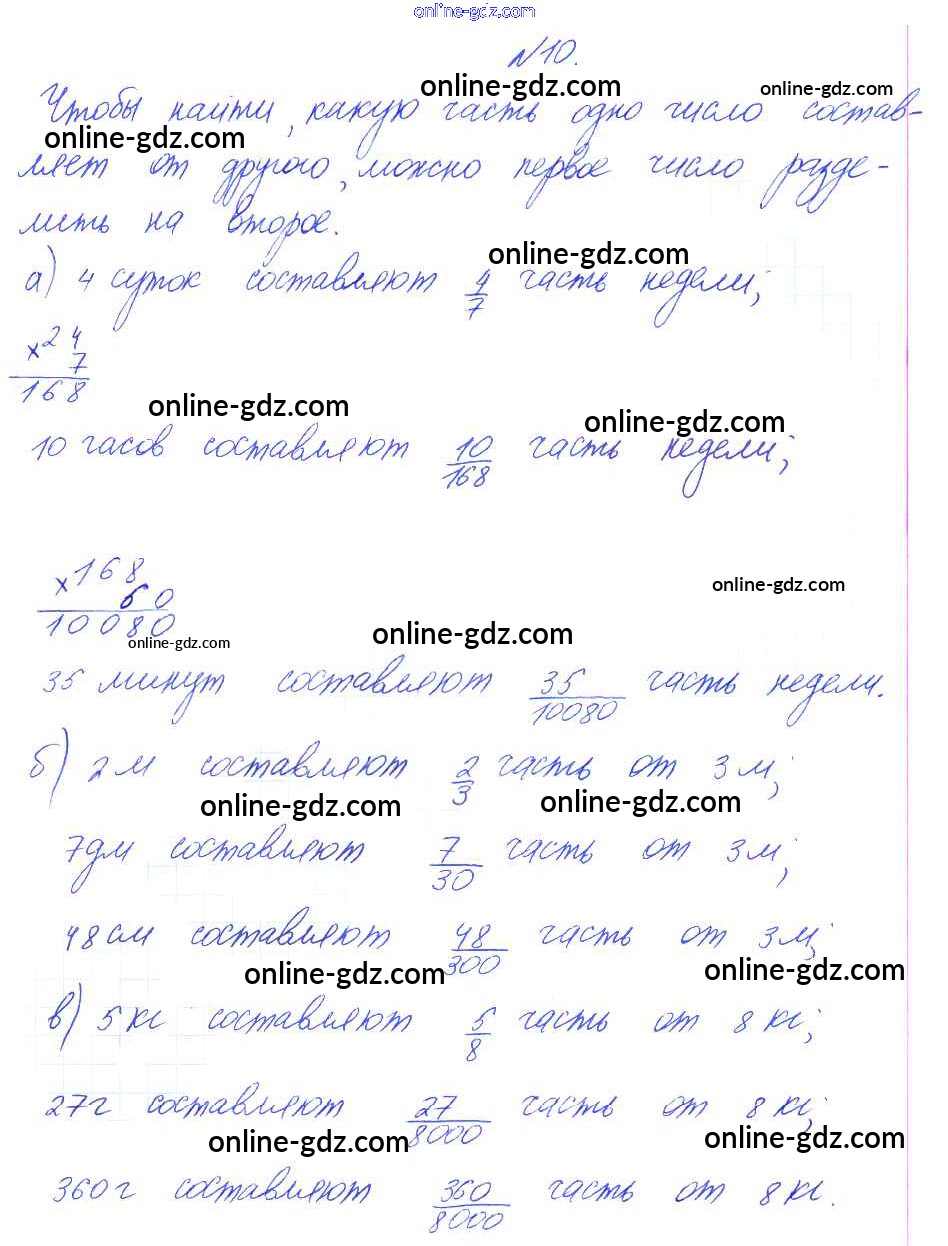 online-gdz.com
№10.
online-gdz.com online-gdz.com
Чтобы найти, какую часть одно число состав-
online-gdz.com
ляет от другого, можно первое число разде-
лить на второе.
online-gdz.com
а) 4 суток составляют 4/7 часть недели;
× 24
7
168
online-gdz.com online-gdz.com
10 часов составляют 10/168 часть недели;
× 168
60
10080
online-gdz.com
online-gdz.com online-gdz.com
35 минут составляют 35/10080 часть недели.
б) 2 м составляют 2/3 часть от 3 м;
online-gdz.com online-gdz.com
7 дм составляют 7/30 часть от 3 м;
48 см составляют 48/300 часть от 3 м;
online-gdz.com online-gdz.com
в) 5 кг составляют 5/8 часть от 8 кг;
27 г составляют 27/8000 часть от 8 кг;
online-gdz.com online-gdz.com
360 г составляют 360/8000 часть от 8 кг.